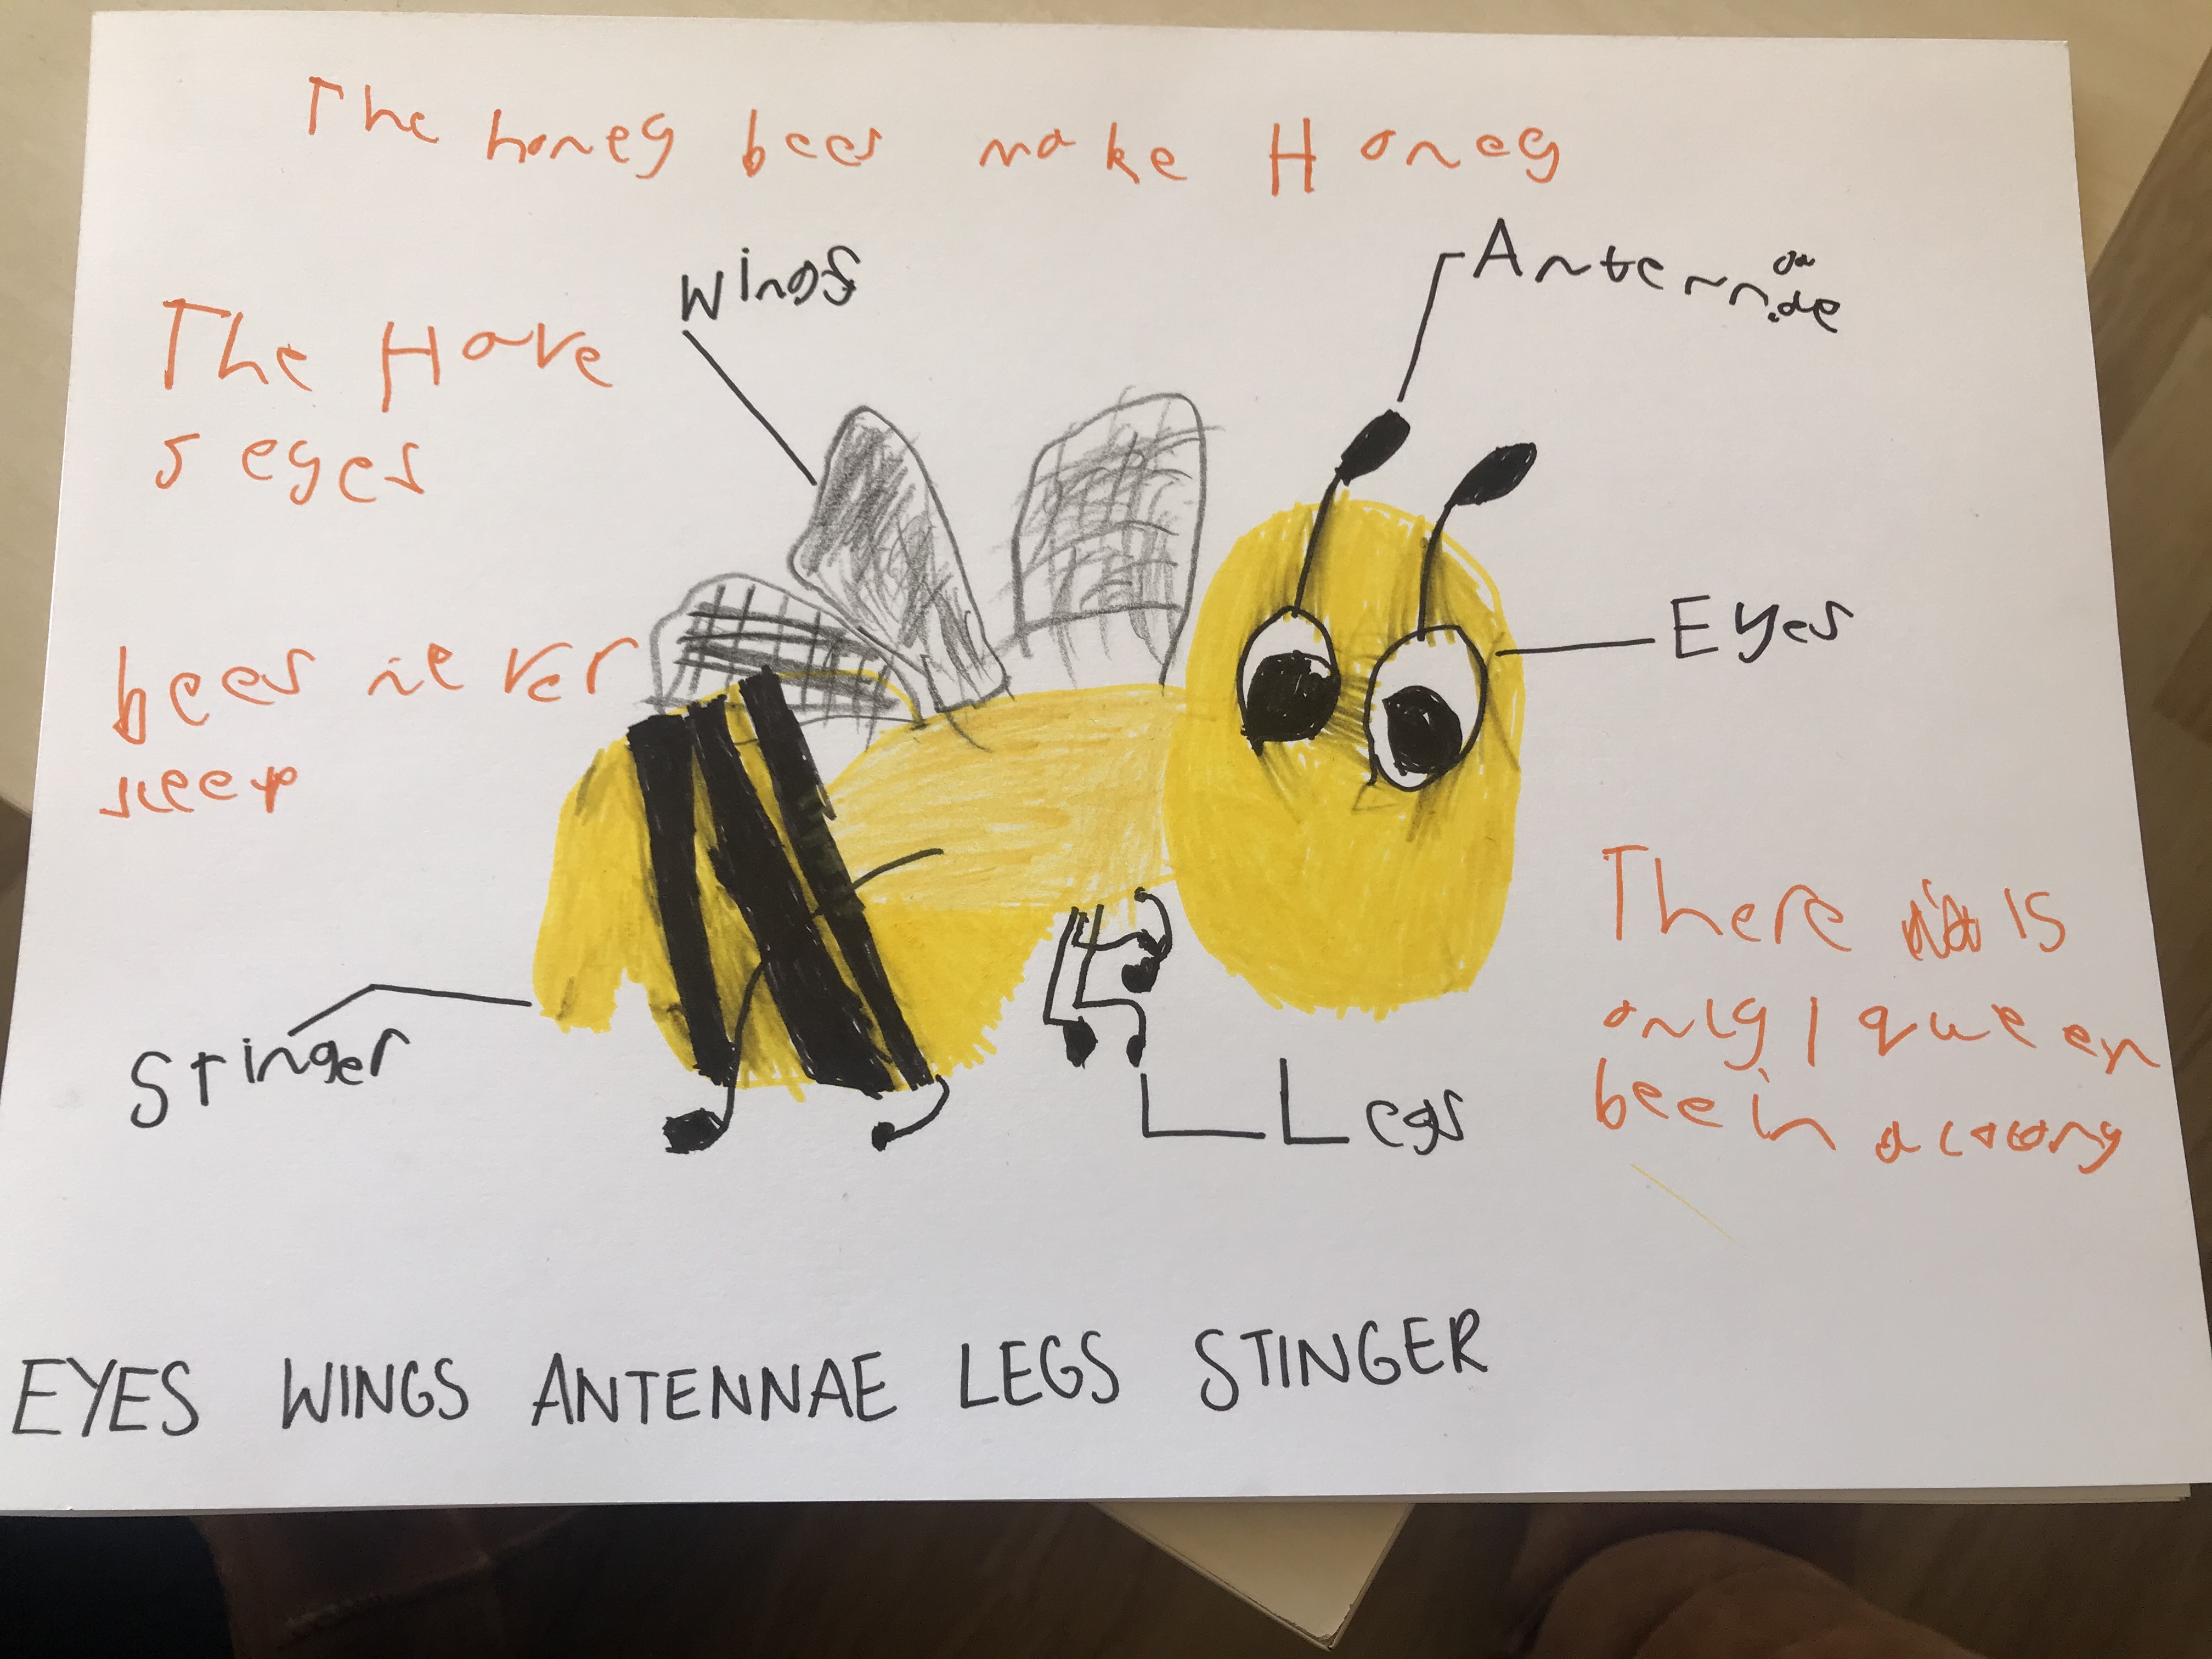 The honey bees make Honey
Wings
Antennae
The Have
5 eyes
Eyes
bees never
sleep
There is
only 1 queen
bee in a colony
Stinger
Legs
EYES WINGS ANTENNAE LEGS STINGER